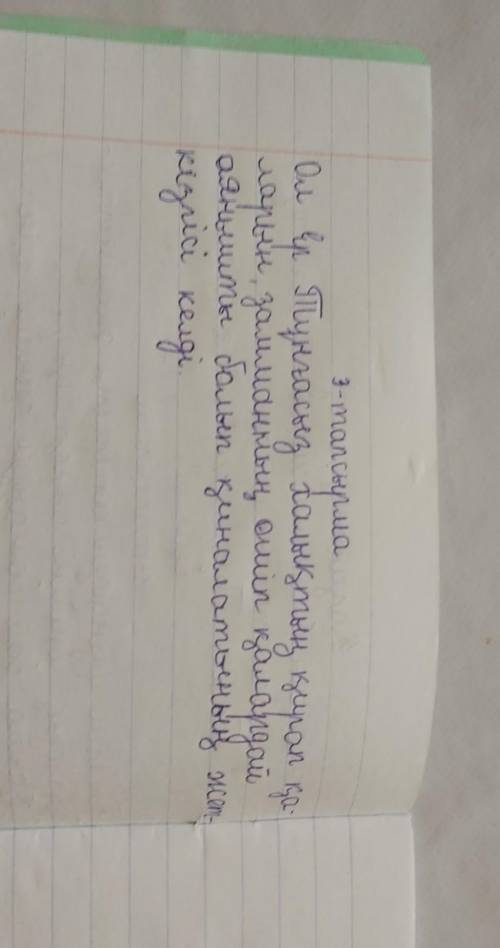 3-тапсырма
Ол ер Тұңғасыз халықтың қырап қа-
ларын, замманның өшіп қалардай
аянышты болып қиналатынның жет-
кізгісі келді.